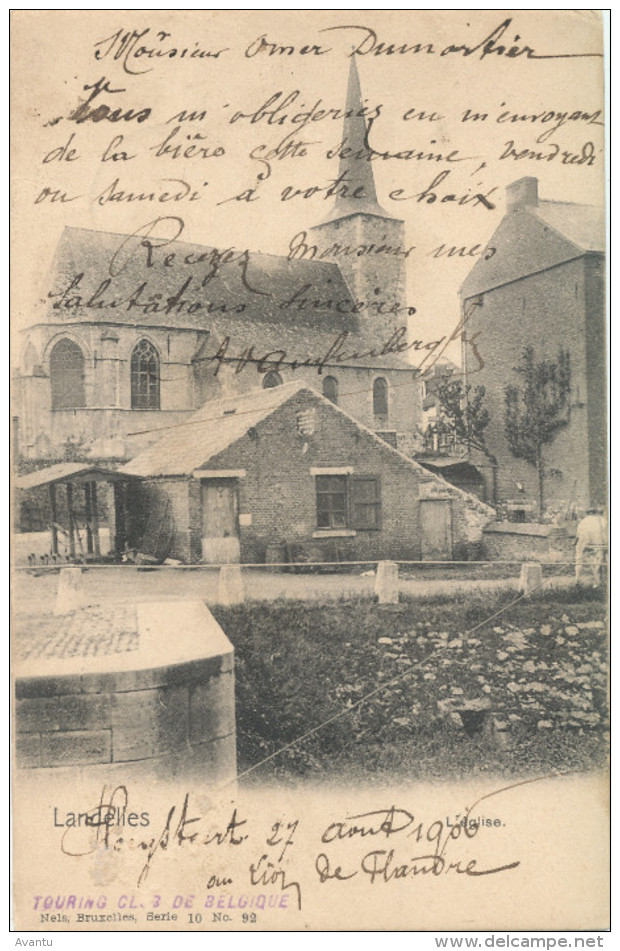 Monsieur Omer Dumortier
Vous m'obligeriez en m'envoyant
de la bière cette semaine, vendredi
ou samedi à votre choix
Recevez Monsieur mes
salutations sincères
Landelles
L'église.
27 août 1906
au Lion de Flandre
TOURING CL. B DE BELGIQUE
Nels, Bruxelles, Serie 10 No. 92
www.delcampe.net